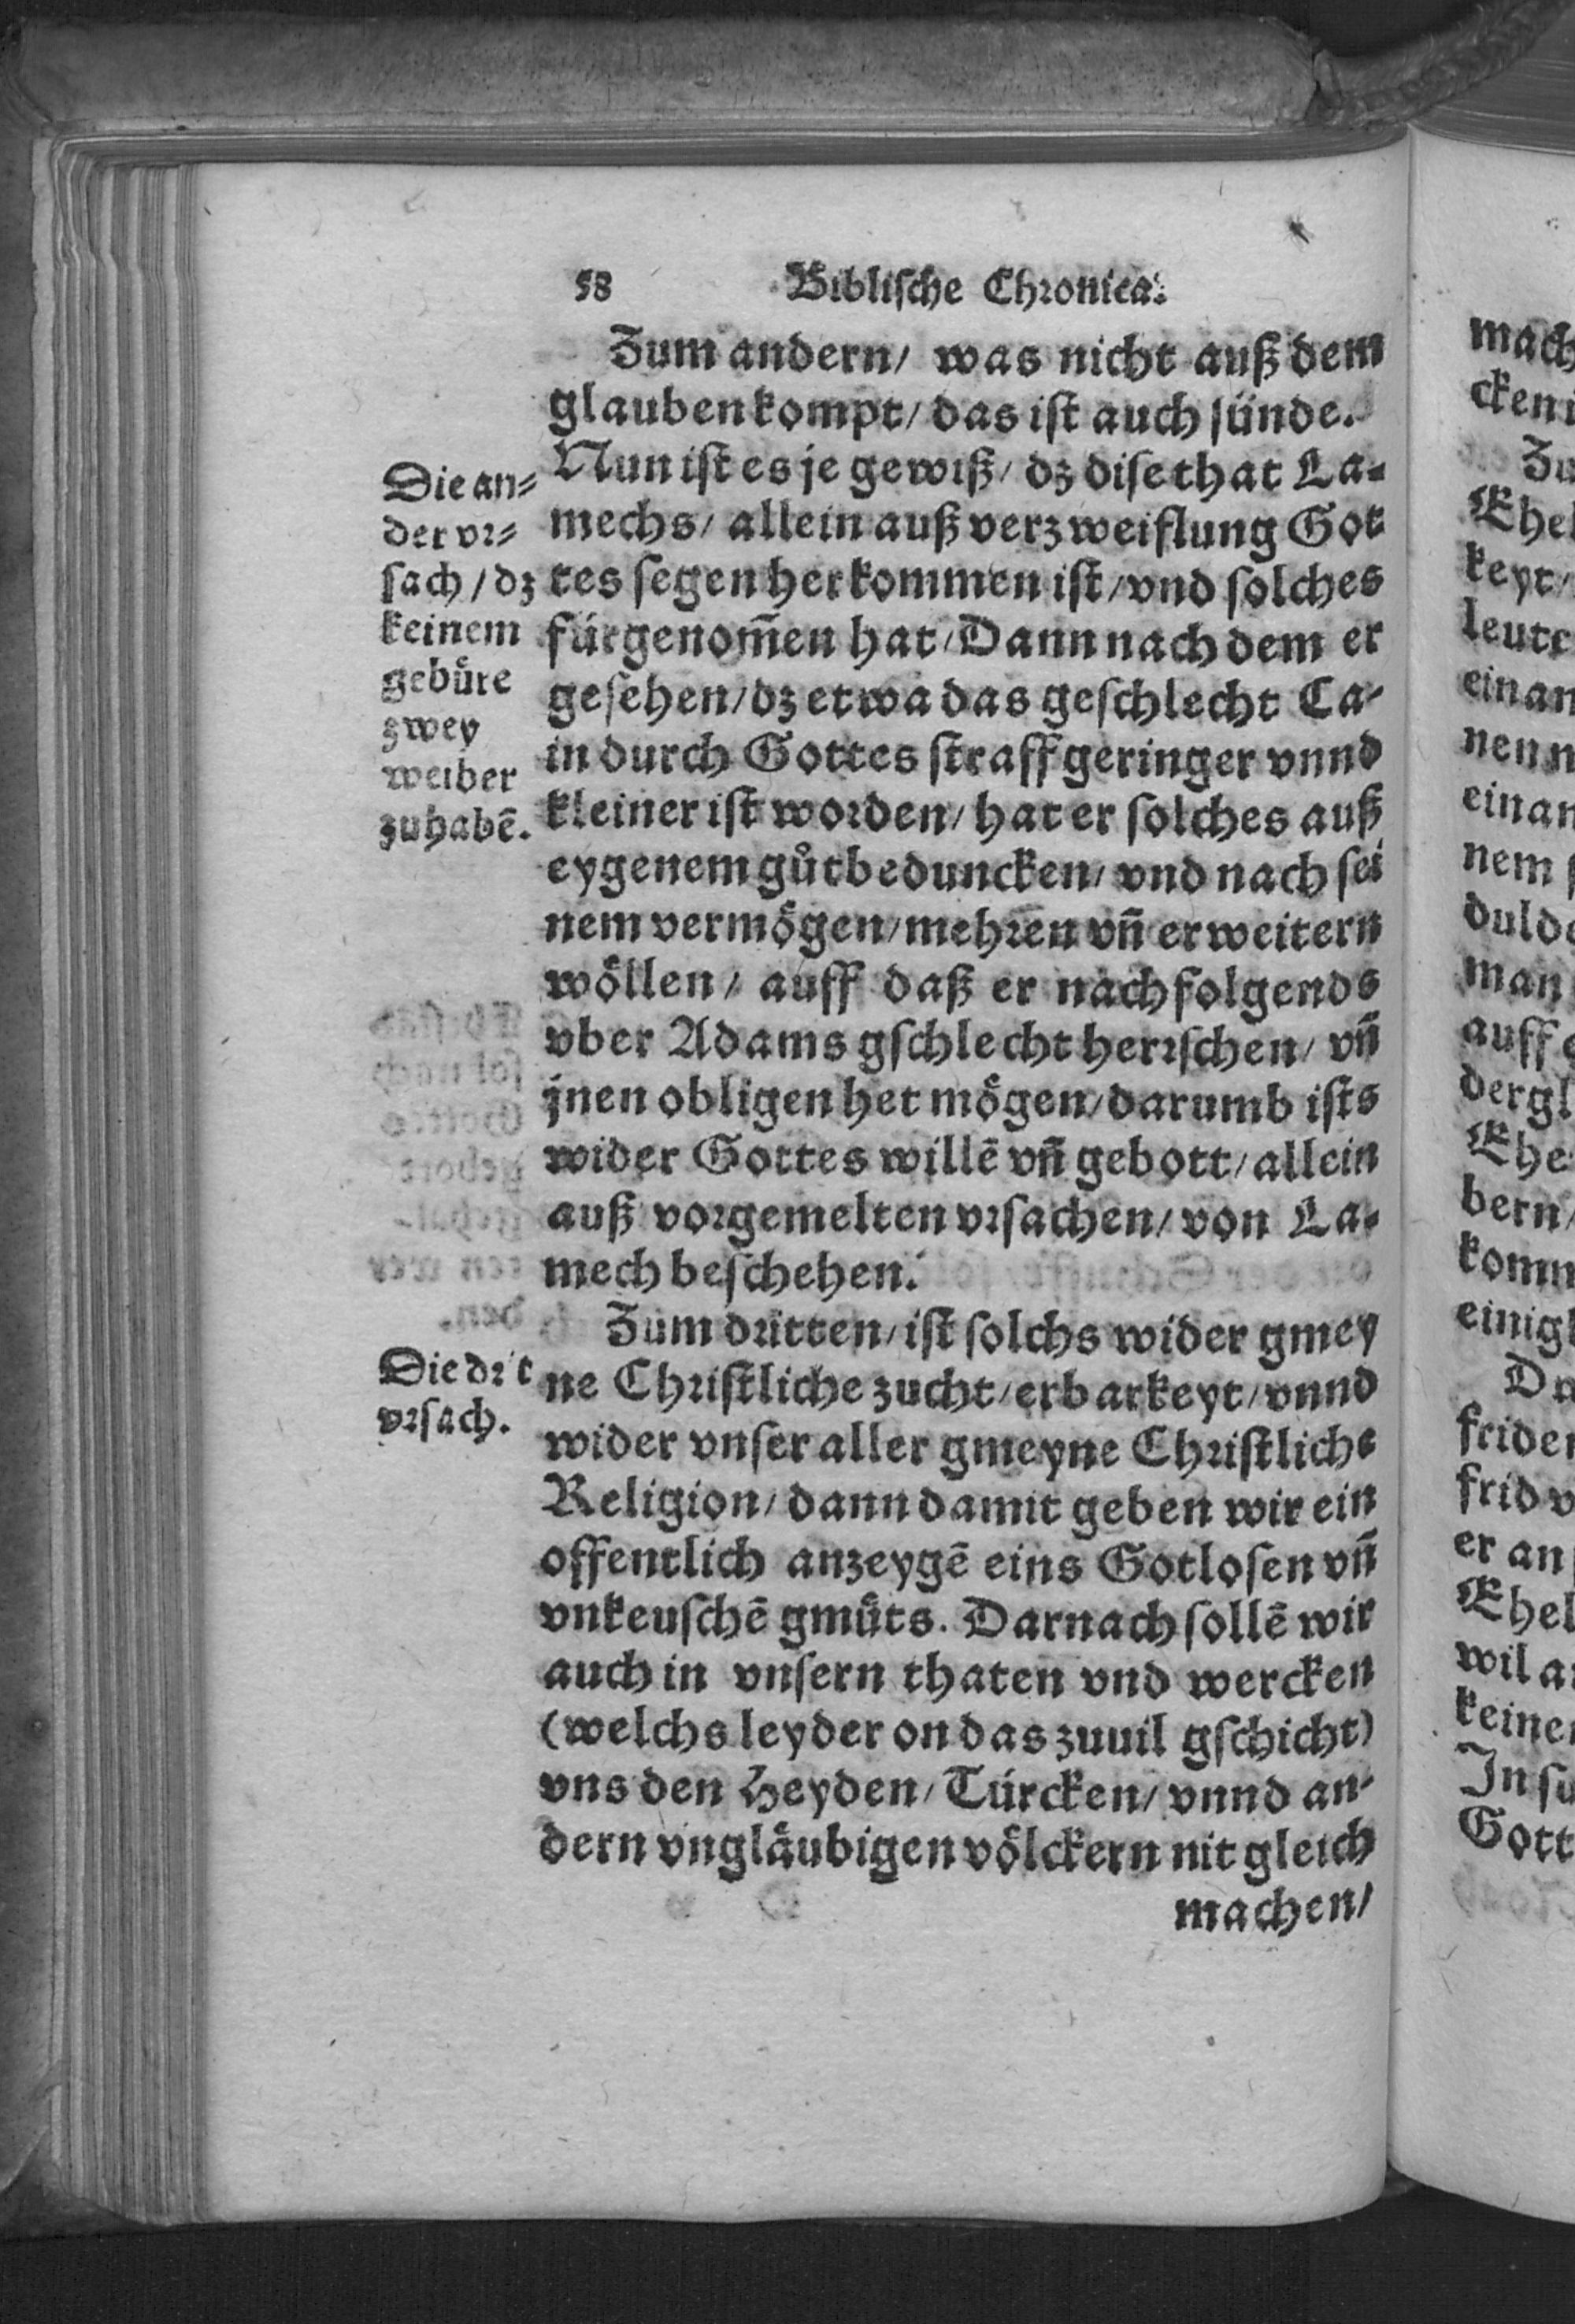 58 Biblische Chronica.
Zum andern/ was nicht auß dem
glauben kompt/ das ist auch sünde.
Nun ist es je gewiß/ dz dise that La-
mechs/ allein auß verzweiflung Got
tes segen herkommen ist/ vnd solches
fürgenom̃en hat/ Dann nach dem er
gesehen/ dz etwa das geschlecht Ca-
in durch Gottes straff geringer vnnd
kleiner ist worden/ hat er solches auß
eygenem gůtbeduncken/ vnd nach sei
nem vermögen/ mehren vñ erweitern
wöllen/ auff daß er nachfolgends
vber Adams gschlecht herrschen/ vñ
jnen obligen het mögen/ darumb ists
wider Gottes willē vñ gebott/ allein
auß vorgemelten vrsachen/ von La-
mech beschehen.
Zum dritten/ ist solchs wider gmey
ne Christliche zucht/ erbarkeyt/ vnnd
wider vnser aller gmeyne Christliche
Religion/ dann damit geben wir ein
offentlich anzeygē eins Gotlosen vñ
vnkeuschē gmüts. Darnach sollē wir
auch in vnsern thaten vnd wercken
(welchs leyder on das zuuil gschicht)
vns den Heyden/ Türcken/ vnnd an-
dern vngläubigen völckern nit gleich
machen/
Die an-
der vr-
sach/ dz
keinem
gebüre
zwey
weiber
zuhabē.
Die drit
vrsach.
mach
cken
Zu
Ehel
keyt/
leute
einan
nen n
einan
nem
dulde
man
auff
dergl
Ehe
bern/
komm
einigk
Da
friden
frid v
er an
Ehel
wil a
keinen
In su
Gott